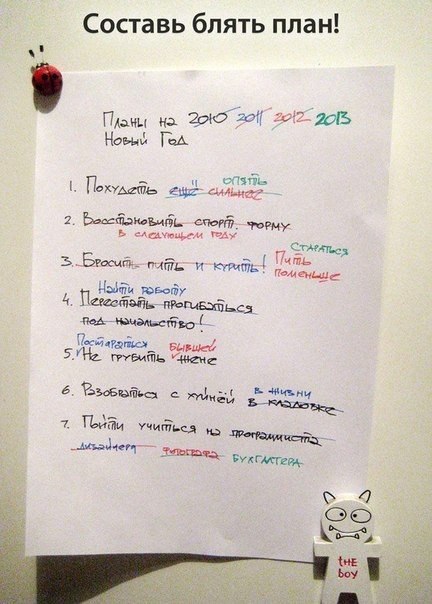 Составь блять план!
Планы на 2010 2011 2012 2013
Новый Год
опять
1. Похудеть ещё сильнее
2. Восстановить спорт. форму
в следующем году
Стараться
3. Бросить пить и курить! Пить
поменьше
Найти работу
4. Перестать прогибаться
под начальство!
Постараться бывшей
5. Не грубить жене
6. Разобраться с хуйнёй в жизни
в кладовке
7. Пойти учиться на программиста
дизайнера фотографа бухгалтера
the
boy